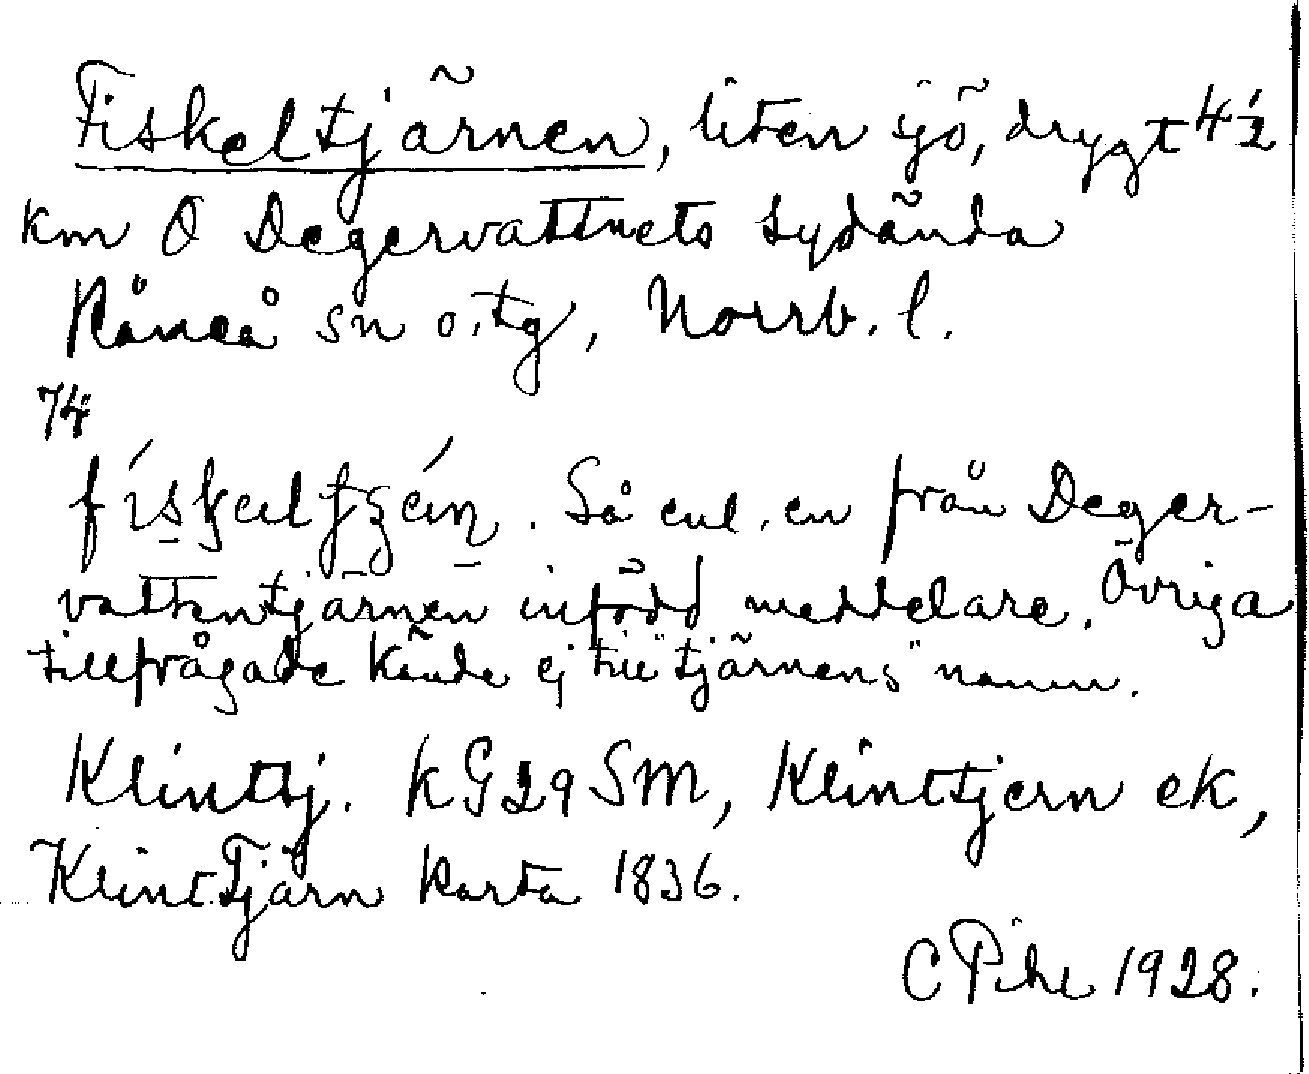 Fiskeltjärnen, liten sjö, drygt 4½
km O Degervattnets sydända
Råneå sn o. tg, Norrb. l.
74
Så enl. en från Deger-
vattentjärnen infödd meddelare. Övriga
tillfrågade kände ej till "tjärnens" namn.
Klinttj. kG29SM, Klinttjern ek,
KlintTjärn karta 1836.
C Pihl 1928.